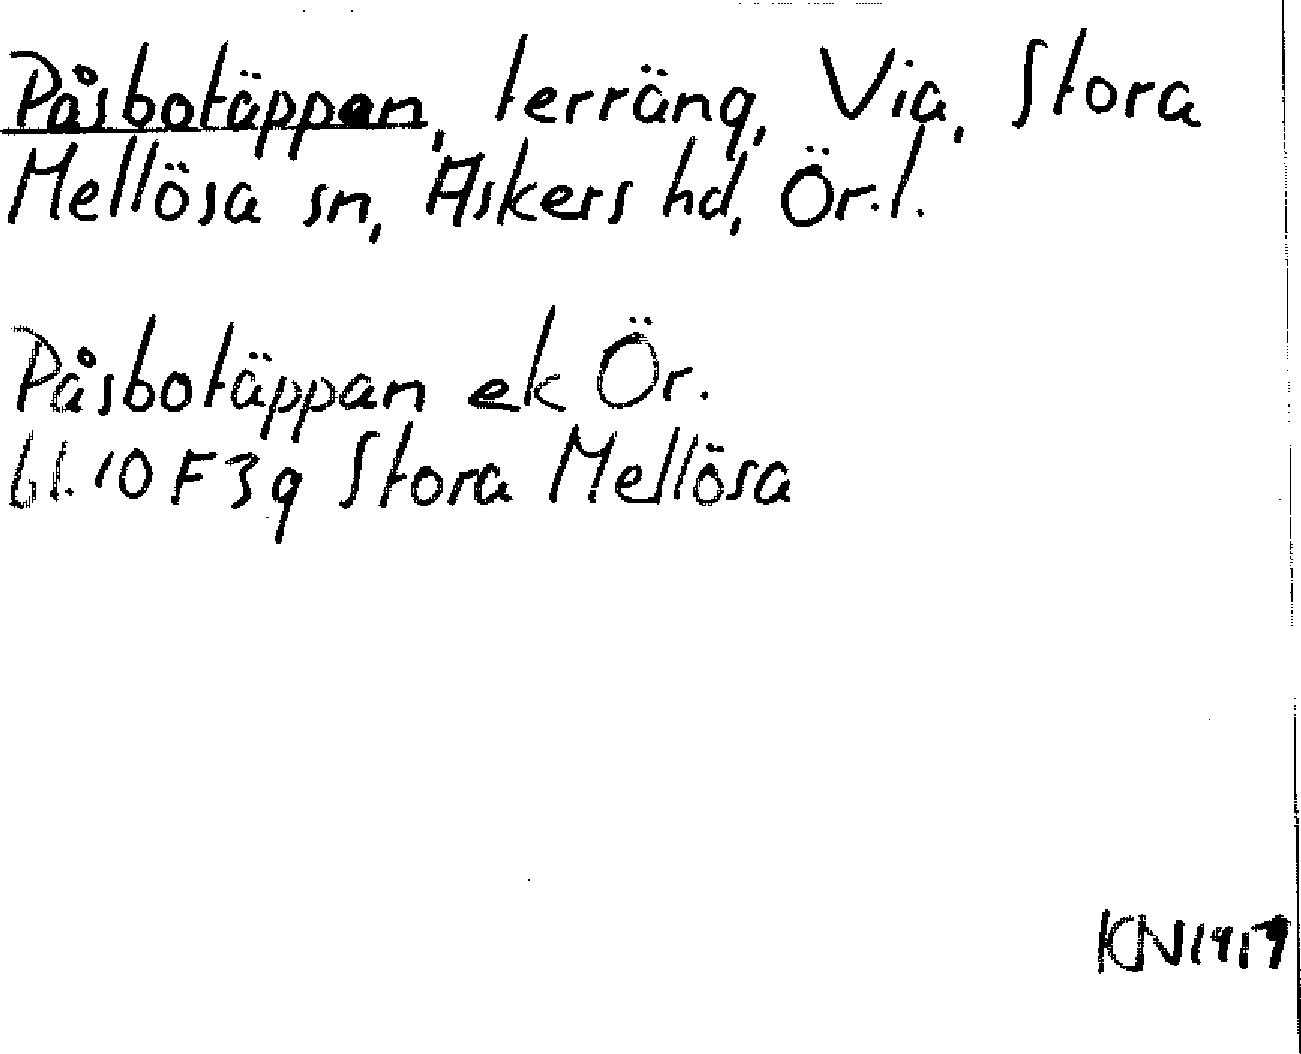 Påsbotäppan, terräng, Via, Stora
Mellösa sn, Askers hd, Ör.l.
Påsbotäppan ek Ör.
bl. 10 F 3 g Stora Mellösa